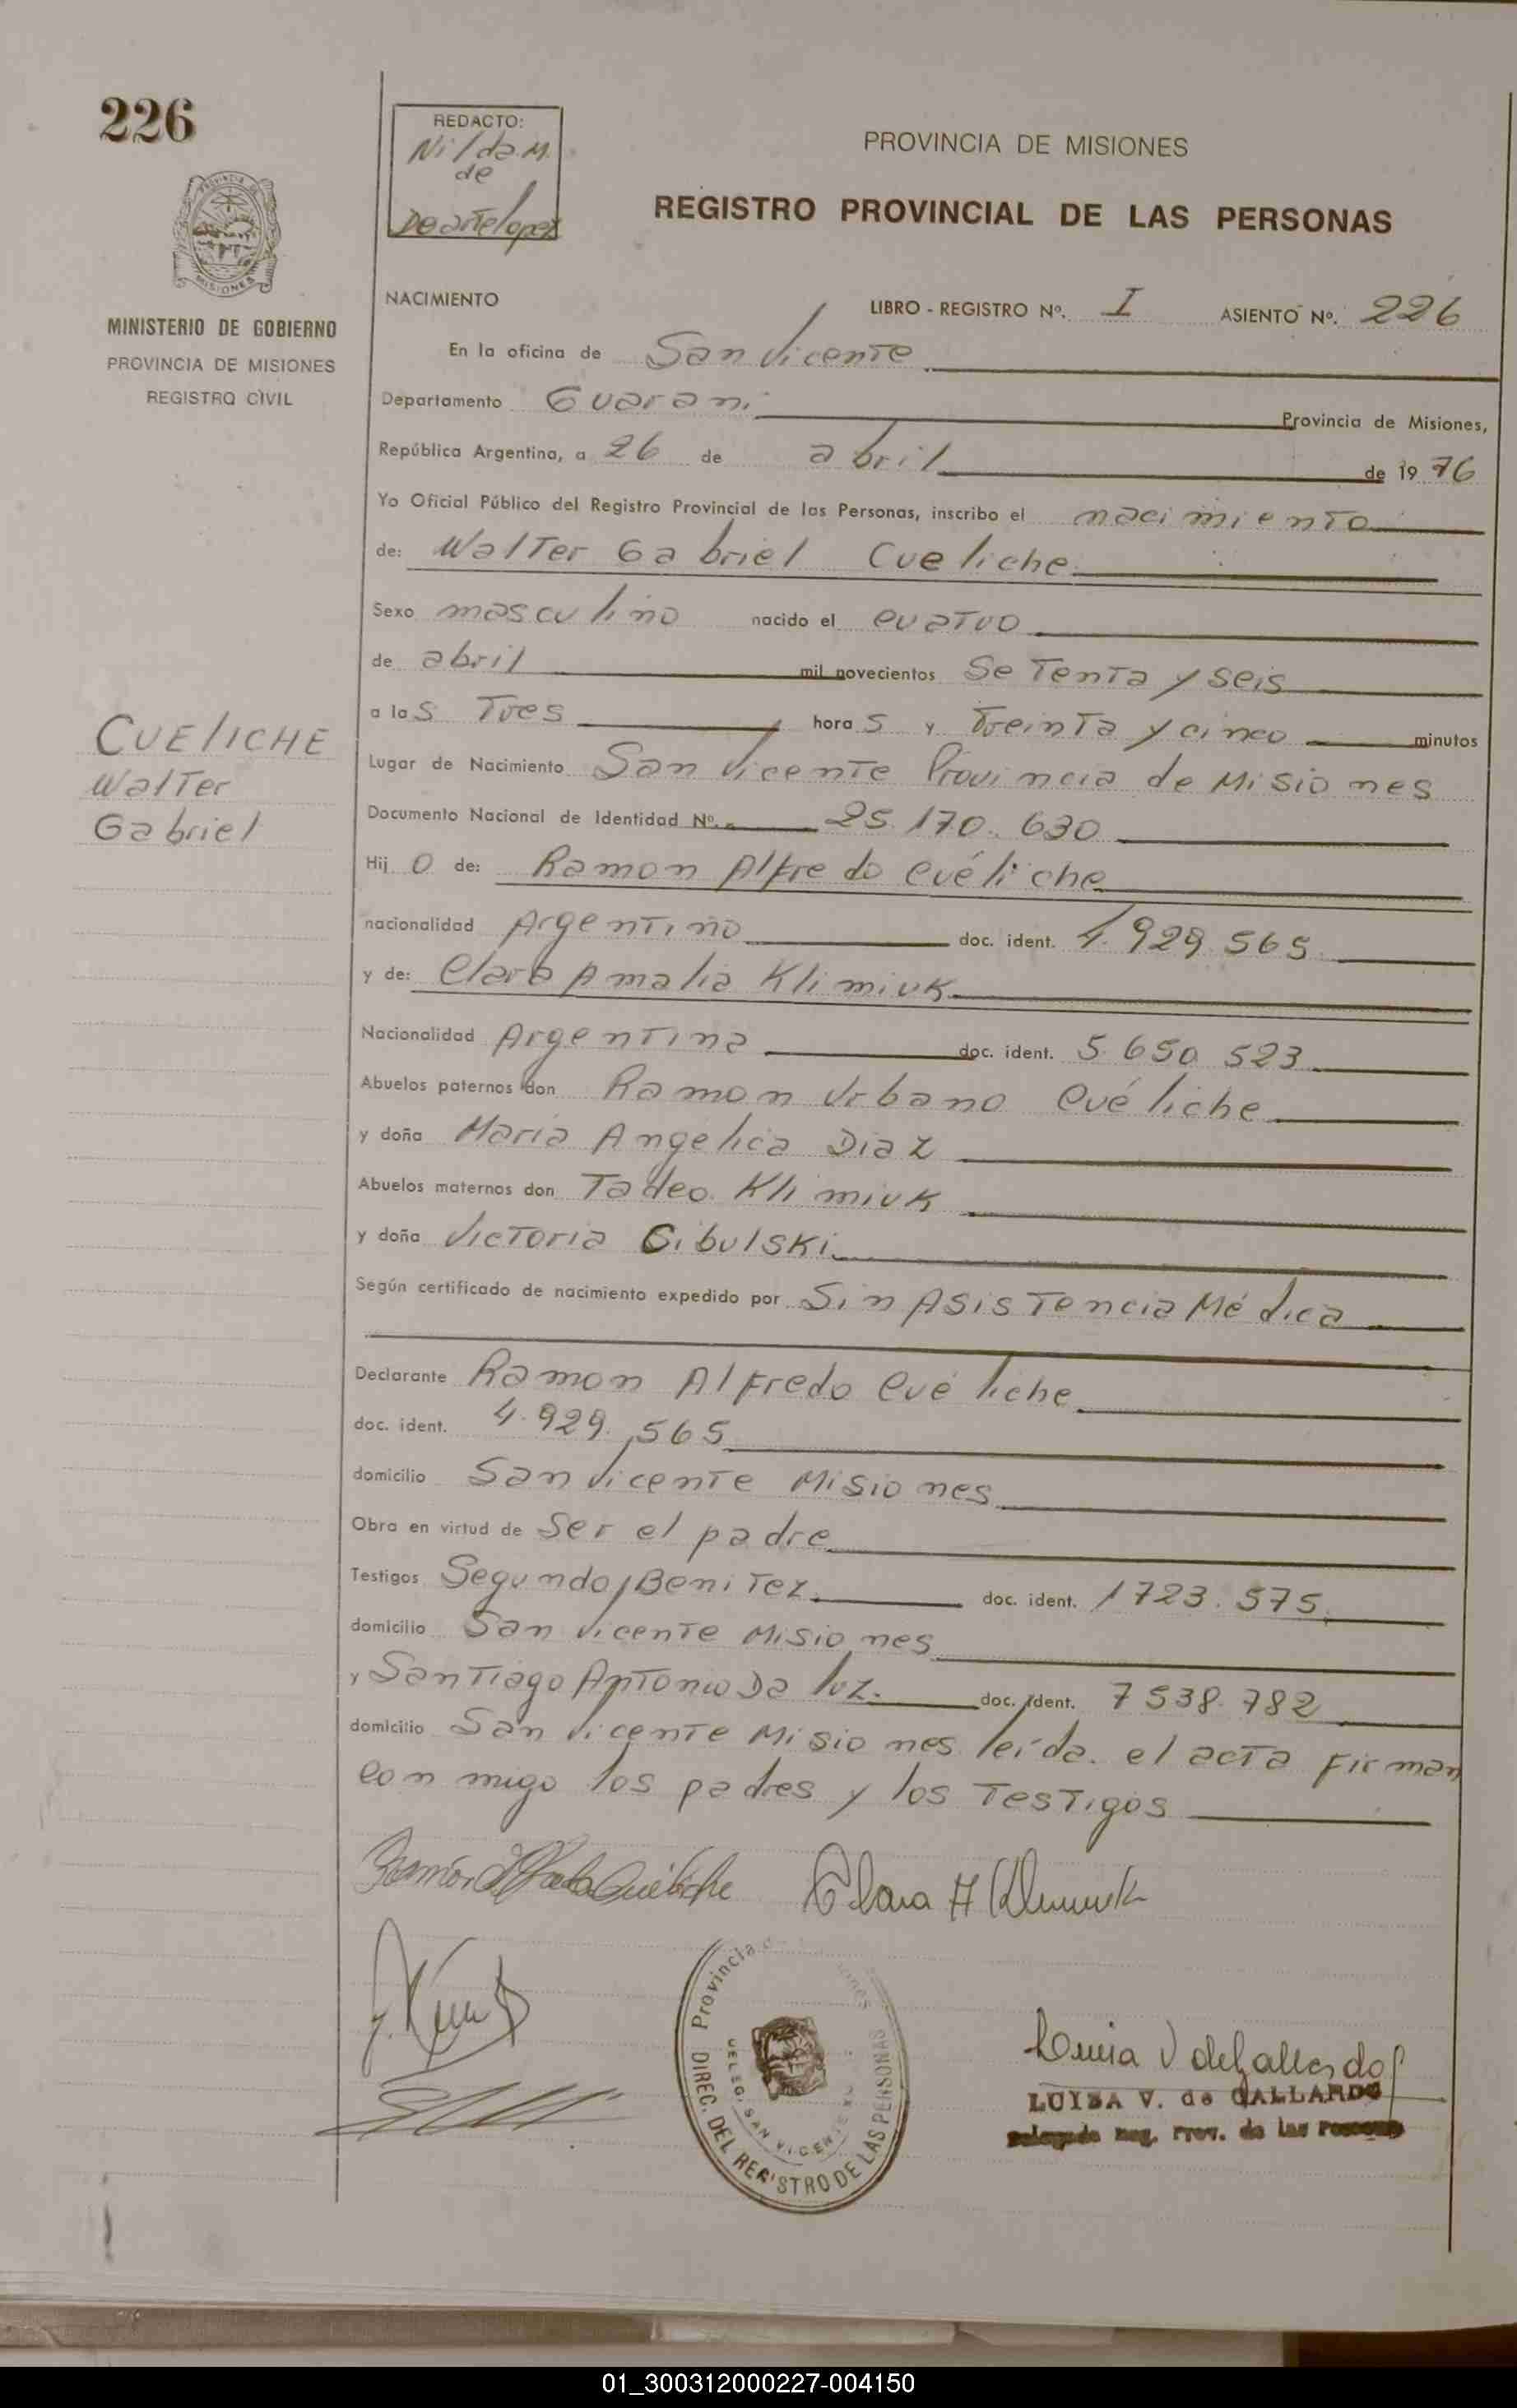 226
REDACTO:
Nilda M.
de
PROVINCIA DE MISIONES
REGISTRO PROVINCIAL DE LAS PERSONAS
MISIONES
MINISTERIO DE GOBIERNO
PROVINCIA DE MISIONES
REGISTRO CIVIL
NACIMIENTO LIBRO - REGISTRO Nº. I ASIENTO Nº. 226
En la oficina de San Vicente
Departamento Guarani Provincia de Misiones,
República Argentina, a 26 de abril de 1976
Yo Oficial Público del Registro Provincial de las Personas, inscribo el nacimiento
de: Walter Gabriel Cueliche
Sexo masculino nacido el cuatro
de abril mil novecientos Setenta y seis
a las Tres horas y Treinta y cinco minutos
CUElICHE
Walter
Gabriel
Lugar de Nacimiento San Vicente Provincia de Misiones
Documento Nacional de Identidad Nº. 25.170.630
Hijo de: Ramon Alfredo Cuéliche
nacionalidad Argentino doc. ident. 4.929.565
y de: Clara Amalia Klimiuk
Nacionalidad Argentina doc. ident. 5.650.523
Abuelos paternos don Ramon Urbano Cuéliche
y doña Maria Angelica Diaz
Abuelos maternos don Tadeo Klimiuk
y doña Victoria Cibulski
Según certificado de nacimiento expedido por Sin Asistencia Médica
Declarante Ramon Alfredo Cuéliche
doc. ident. 4.929.565
domicilio San Vicente Misiones
Obra en virtud de Ser el padre
Testigos Segundo Benitez doc. ident. 1723.575
domicilio San Vicente Misiones
y Santiago Antonio Da luz. doc. ident. 7538.782
domicilio San Vicente Misiones leída el acta firman
con migo los padres y los Testigos
Ramón Alfredo Cuéliche Clara A Klimiuk
Provincia
DIREC. DEL REGISTRO DE LAS PERSONAS
DELEG. SAN VICENTE
Luisa V de Gallardo
LUISA V. de GALLARDO
Delegada Reg. Prov. de las Personas
01_300312000227-004150